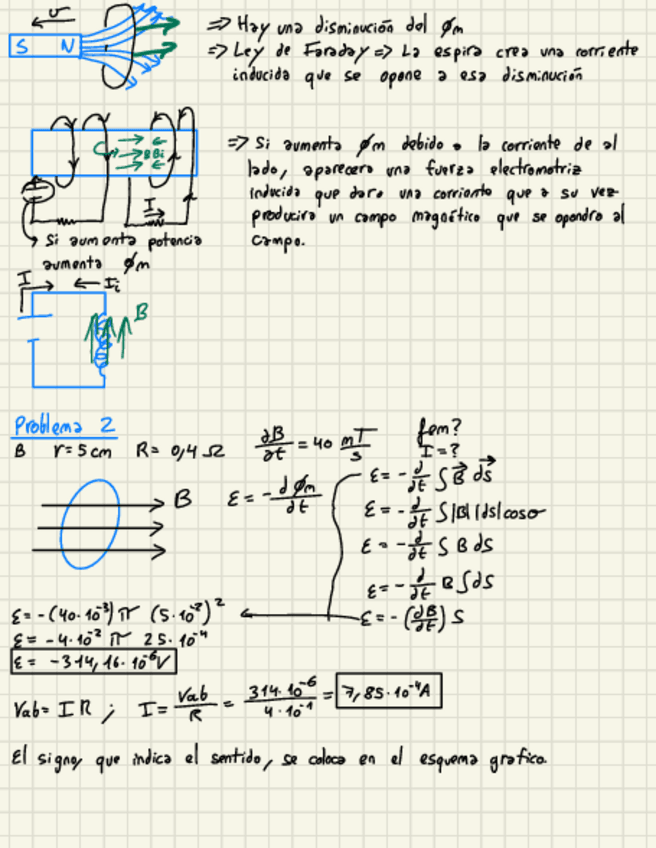 v
S N
=> Hay una disminución del φm
=> Ley de Faraday => La espira crea una corriente
inducida que se opone a esa disminución
=> Si aumenta φm debido a la corriente de al
lado, aparecera una fuerza electromotriz
inducida que dara una corriente que a su vez
producira un campo magnético que se opondra al
campo.
Bi
I
Si aumenta potencia
aumenta φm
I Ii
B
Problema 2
B r=5cm R= 0,4 Ω ∂B/∂t = 40 mT/s fem?
I=?
B
ε = - dφm/∂t
ε= - d/∂t ∫B⃗ ds⃗
ε= - d/∂t ∫|B||ds|cosσ
ε= - d/∂t ∫ B ds
ε= - d/∂t B ∫ds
ε= - (∂B/∂t) S
ε= -(40·10⁻³) π (5·10⁻²)²
ε= -4·10⁻² π 25·10⁻⁴
ε= -314,16·10⁻⁶V
Vab= I R ; I= Vab/R = 314·10⁻⁶/4·10⁻¹ = 7,85·10⁻⁴A
El signo, que indica el sentido, se coloca en el esquema grafico.